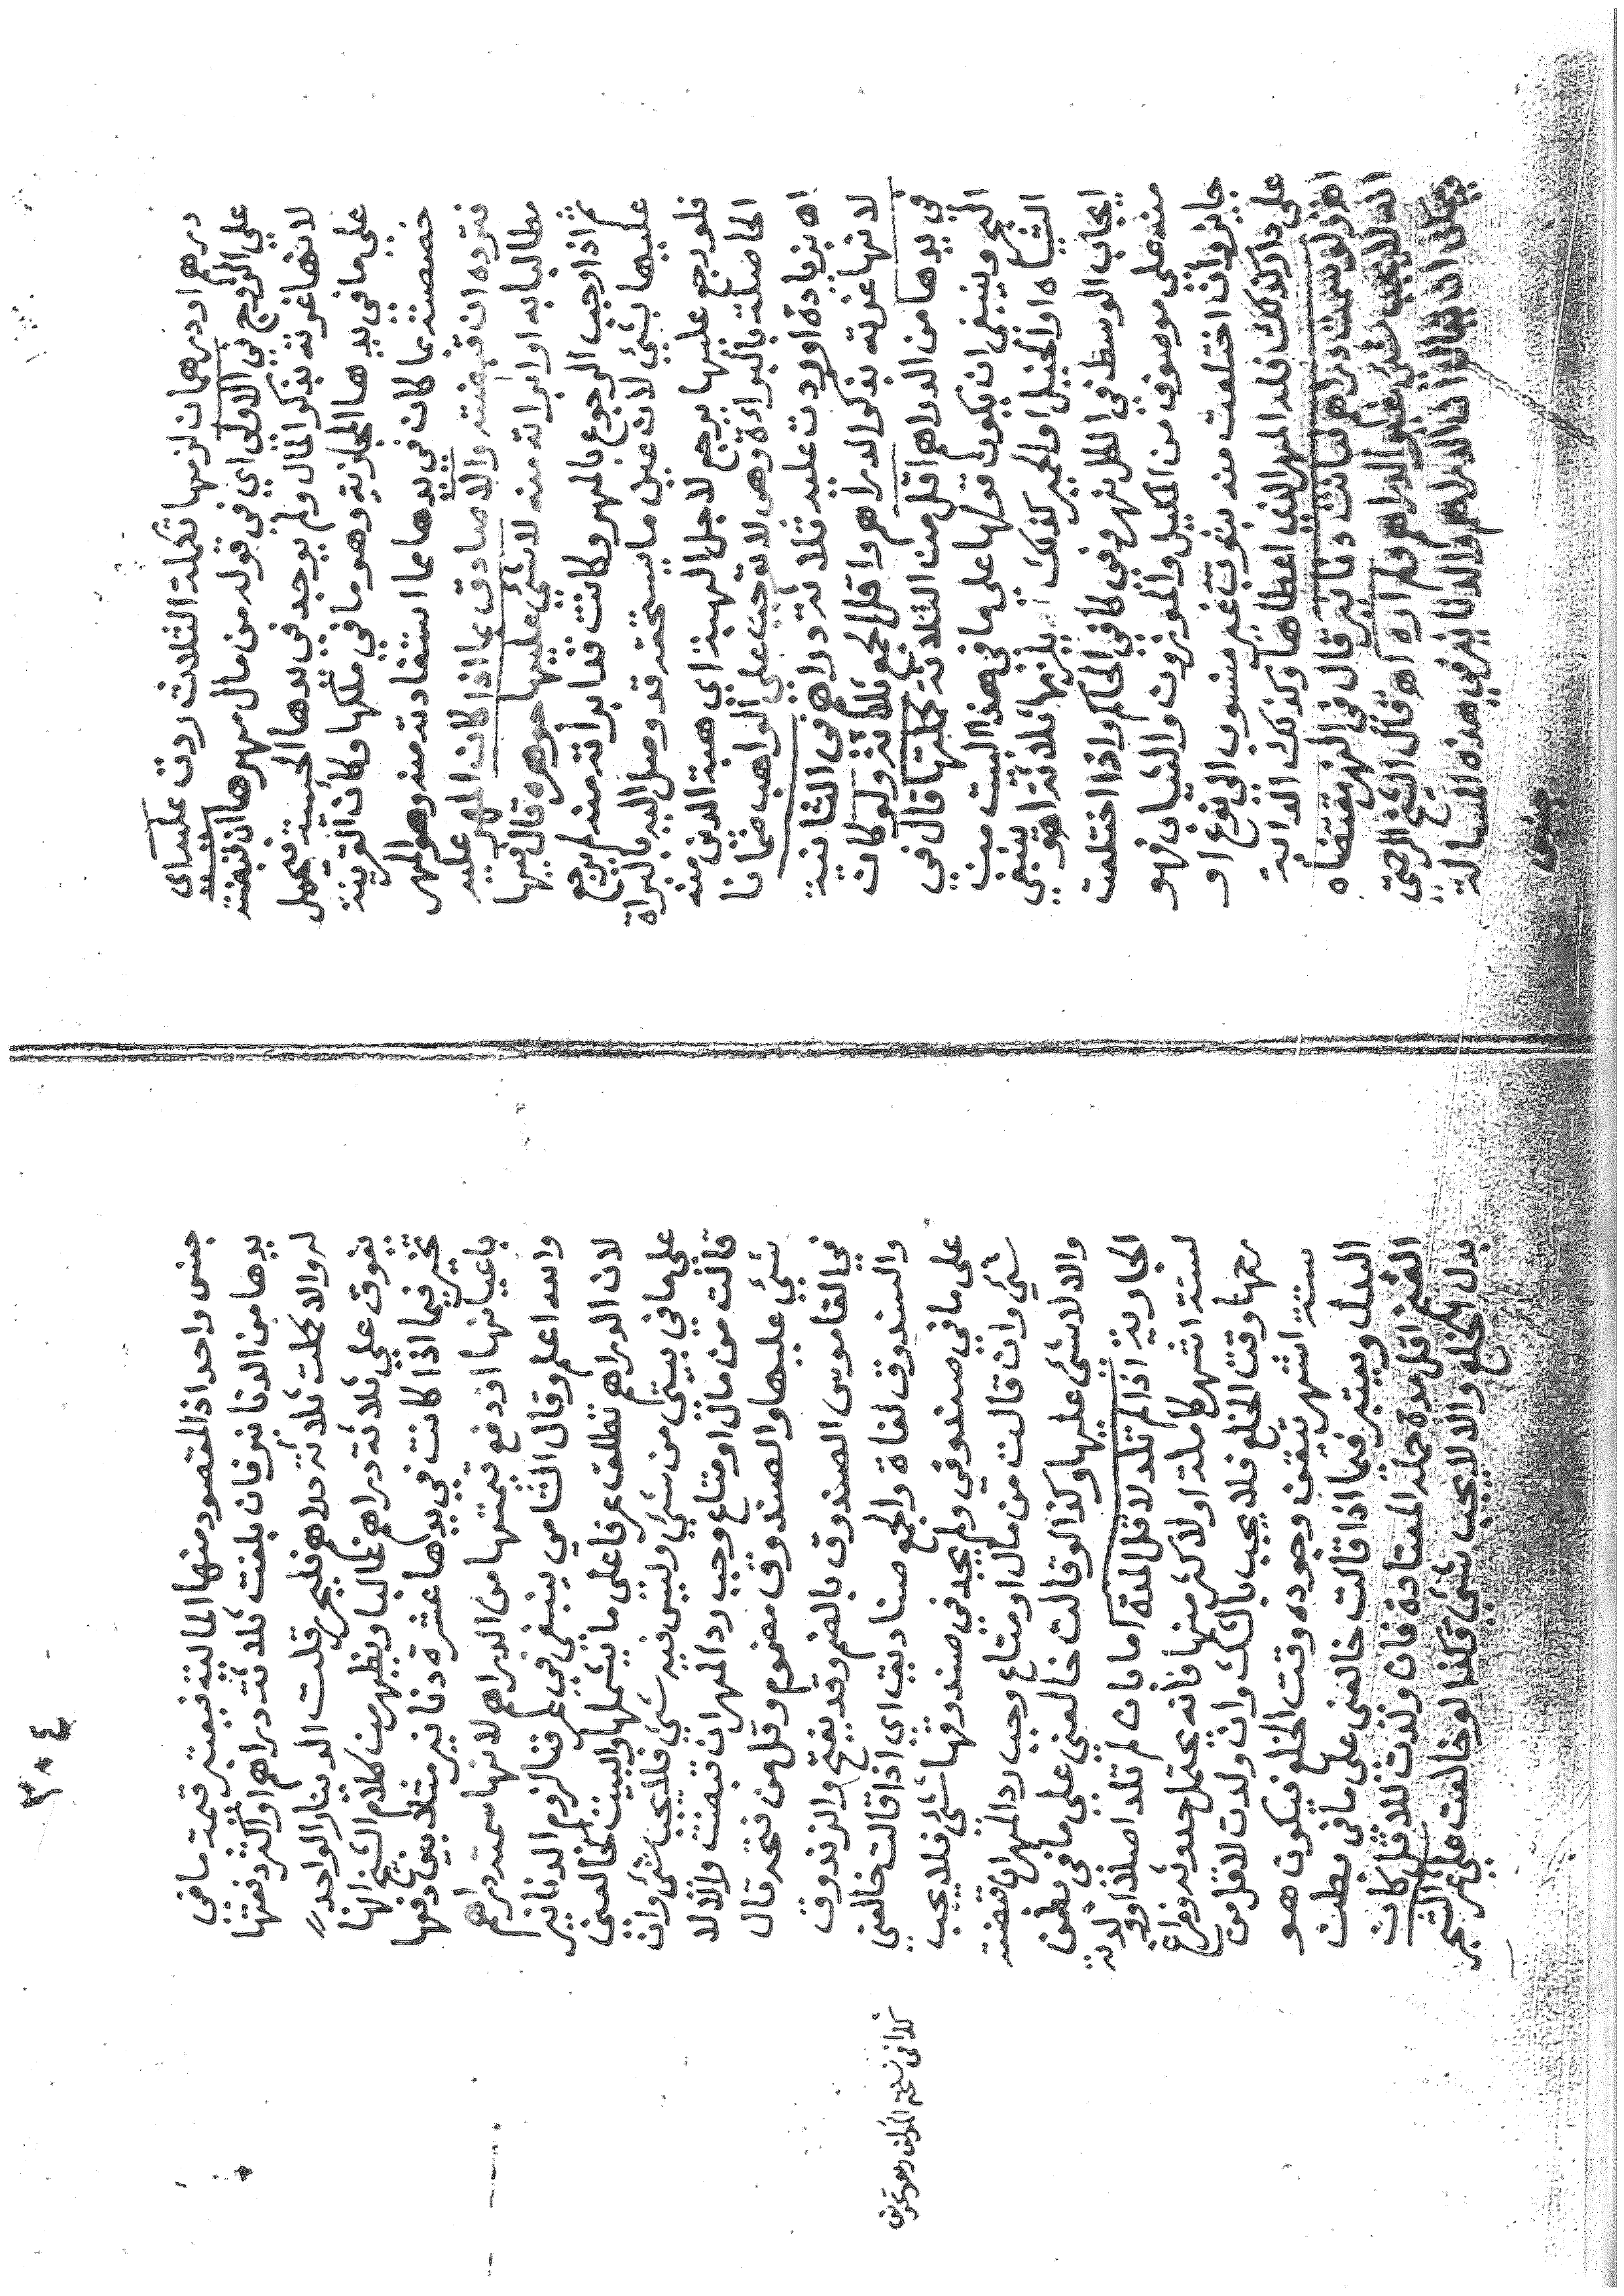 درهم او درهمان لزمها تكملة الثلاث ردت عليه اي
على الزوج في الاولى اي في قوله من مال مهرها ان قبضته
لانها غرته بذكر المال ولم يوجد في يدها الحسية تحمل
على ما في يدها المجازية وهو ما في ملكها وكان القرينة
خصصته بما كان في يدها مما استفادته منه وهو المهر
فترده ان قبضته والا صادق بما اذا كان المهر عليه
مطالبا به او ابراته منه لا شيء عليها جوهرة قال فيها
ثم اذا وجب الرجوع بالمهر وكانت قد ابراته منه لم يرجع
عليها بشيء لان عين ما يستحقه قد وصل اليه بالبراة
فلو رجع عليها يرجع لاجل الهبة اي هبة الدين منه
الحاصلة بالبراءة وهي لا توجب على الواهب ضمانا
اه بزيادة او ردت عليه ثلاثة دراهم في الثانية
لانها غرته بذكر الدراهم واقل الجمع ثلاثة ولو كان
في يدها من الدراهم اقل من الثلاثة كملتها قال في
النهر وينبغي ان يكون قولها على ما في هذا البيت من
الشياه او الخيل او الحمير كذلك يلزمها ثلاثة اهـ ينبغي
ايجاب الوسط في الكل نهر وفي كافي الحاكم واذا اختلعت
منه على موصوف من المكيل والموزون والثياب فهو
جايز وان اختلعت منه بثوب غير منسوب الى نوع او
على دار كذلك فله المهر الذي اعطاها وكذلك الدابة
اهـ ولو سمت دراهم فبانت دنانير قال في النهر مقتضاه
انه لا يجب شيء غير الدراهم ولم اره اهـ قال الشيخ الرحمتي
يمكن ان يقال ان الدراهم والدنانير في هذه المسالة
جنس
٢٠٤
جنس واحد اذ المقصود منها المالية فيعتبر قيمة ما في
يدها من الدنانير فان بلغت ثلاثة دراهم او اكثر دفعتها
له والا كملت ثلاثة دراهم فليحرر قلت الدينار الواحد
تفوق على ثلاثة دراهم غالبا ويظهر من كلام الشيخ انها
تخير فيما اذا كانت في يدها عشرة دنانير مثلا بين دفعها
باعيانها او دفع قيمتها من الدراهم لانها سمت دراهم
والله اعلم وقال الشامي ينبغي في عرفنا لزوم الدنانير
لان الدراهم تطلق عرفا على ما يشملها والبيت كخالعني
على ما في بيتي من شيء وليس فيه شيء فلا يجب شيء وان
قالت من مال او متاع وجب رد المهر ان قبضت والا لا
شيء عليها والصندوق مضموم وقل من فتحه قال
في القاموس الصندوق بالضم وقد يفتح والزندوق
والسندوق لغات والجمع صناديق اي اذا قالت خالعني
على ما في صندوقي ولم يجد في صندوقها شيء فلا يجب
شيء وان قالت من مال او متاع وجب رد المهر ان قبضته
والا لا شيء عليها وكذا لو قالت خالعني على ما في بطن
الجارية اذا لم تلد لاقل المدة اما بان لم تلد اصلا او ولدته
لستة اشهر كاملة او لاكثر منها فانه يحتمل حدوثه وفراغ
رحمها وقت الخلع فلا يجب بالشك وان ولدت لاقل من
ستة اشهر تيقن وجوده وقت الخلع فيكون هو
البدل ويعتبر فيما اذا قالت خالعني على ما في بطن
الغنم اقل مدة حمله المعتادة فان ولدت لاقل كان
بدل الخلع والا لا يجب شيء وكذا لو خالعت على ثمر الشجر
كذا في نسخة المؤلف